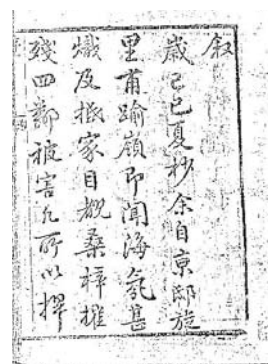 叙
歲己巳夏杪余自京邸旋
里甫踰嶺即聞海氛甚
熾及抵家目覩桑梓摧
殘四鄰被害凡所以